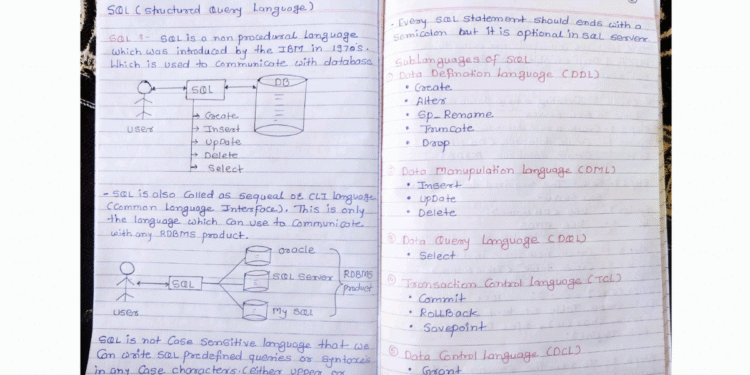 SQL (Structured Query Language)
SQL :- SQL is a non procedural language
which was introduced by the IBM in 1970's.
Which is used to communicate with database
User
SQL
DB
→ Create
→ Insert
→ UpDate
→ Delete
→ Select
- SQL is also Called as Sequeal or CLI language
(Common Language Interface). This is only
the language which Can use to Communicate
with any RDBMS product.
User
SQL
Oracle
SQL Server
My SQL
RDBMS
Product
SQL is not Case Sensitive language that we
Can write SQL predefined queries or Syntaxes
in any Case characters. (either upper or
- Every SQL Statement should ends with a
Semicolon but it is optional in SQL Server
Sublanguages of SQL
Data Defination Language (DDL)
• Create
• Alter
• Sp_Rename
• Truncate
• Drop
② Data Manupulation Language (DML)
• Insert
• UpDate
• Delete
③ Data Query Language (DQL)
• Select
④ Transaction Control Language (TCL)
• Commit
• RollBack
• Savepoint
⑤ Data Control Language (DCL)
• Grant